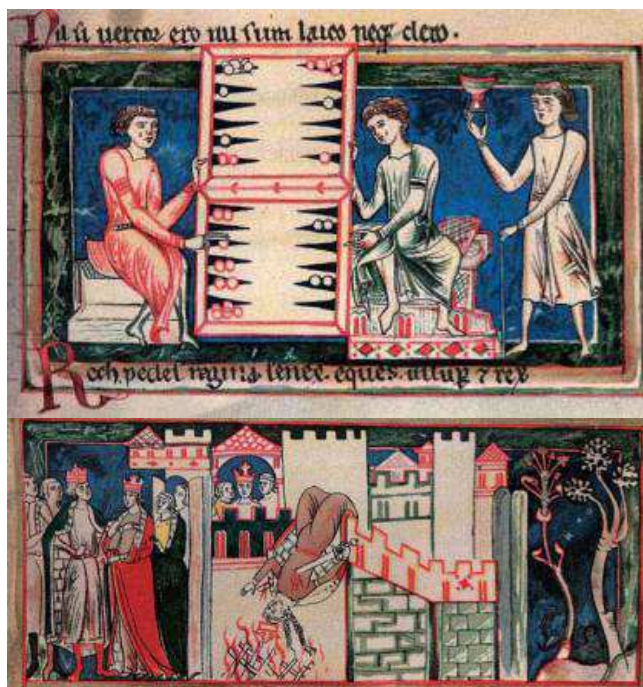 Nil ũ uereor ero nũ sum laico neq; clero.
Roch. pedes regina senex. eques. insup̱ ⁊ rex